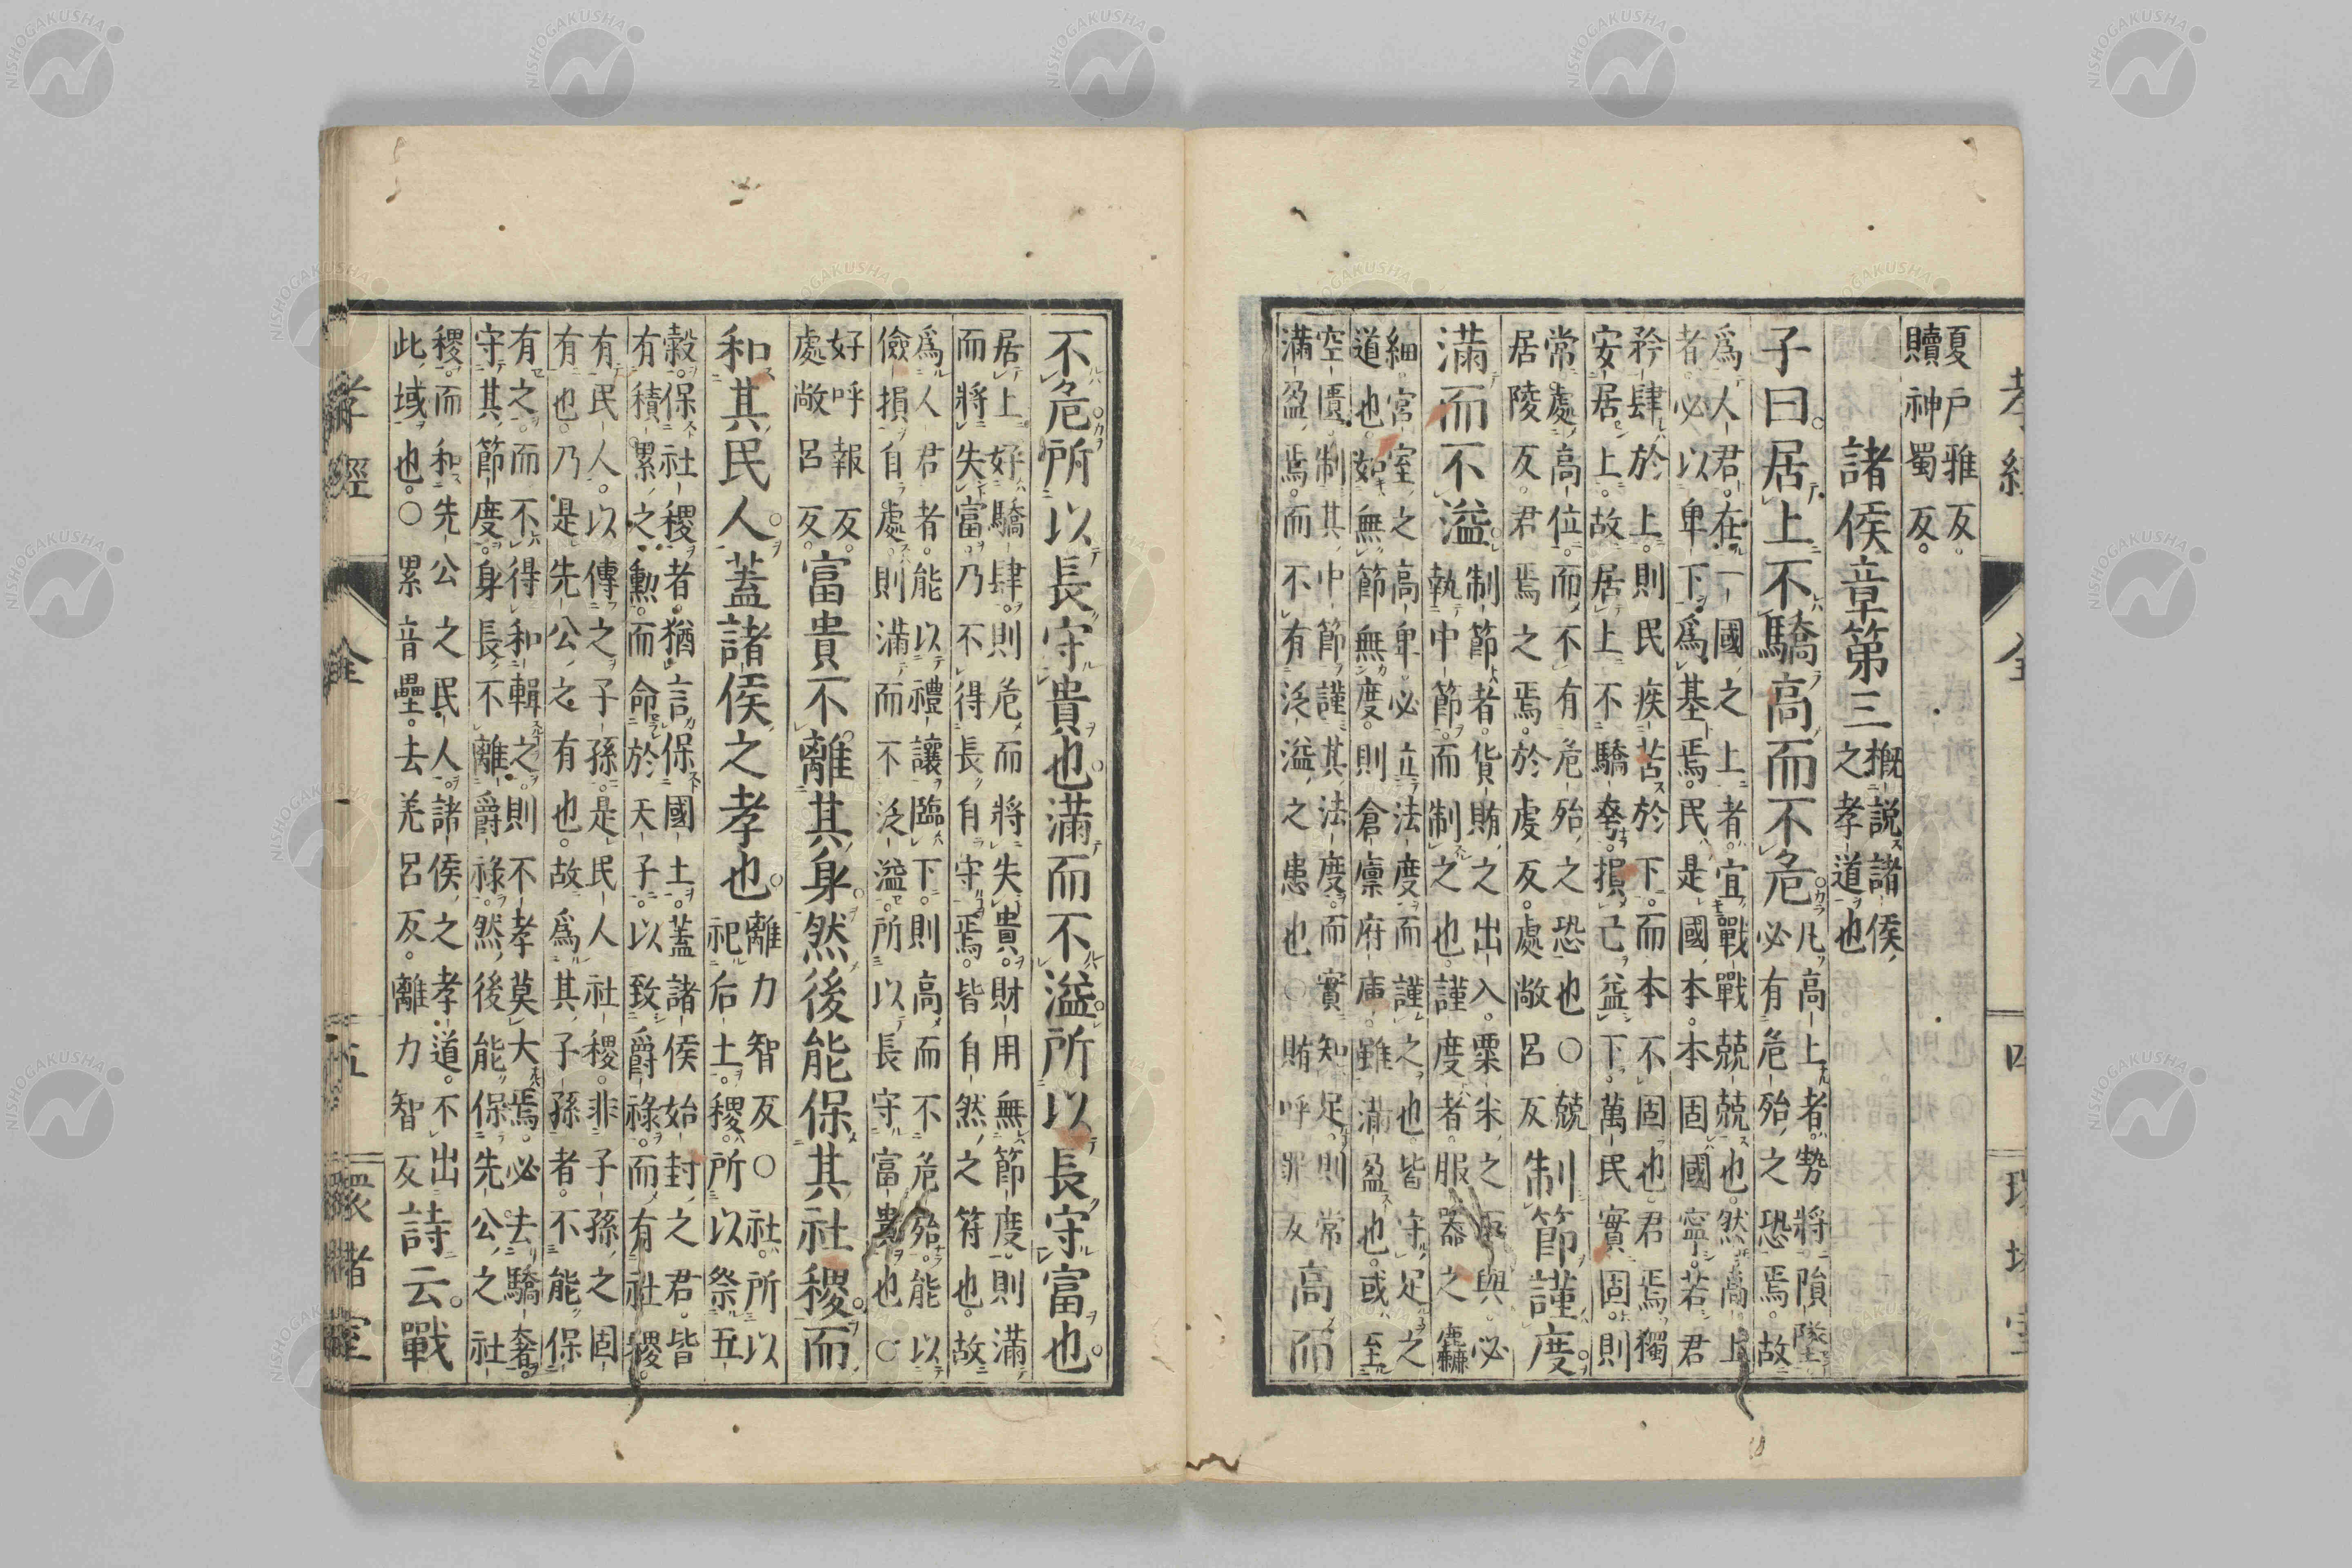 孝經 全 四 環堵室
夏戸雅反。
贖神蜀反。
諸侯章第三
概説諸侯
之孝道也
子曰。居上不驕高而不危
凡高上者勢將隕墜
必有危殆之恐焉。故
爲人君。在一國之上者。宜戰戰兢兢也。然高上
者必以卑下爲基焉。民是國本。本固國寧。若君
矜肆於上。則民疾苦於下。而本不固也。君焉獨
安居上。故居上不驕。務損己益下。萬民實固。則
常處高位。而不有危殆之恐也〇兢
居陵反。君焉之焉。於虔反。處敞呂反
制節謹度。
滿而不溢。
制節者。貨賄之出入。粟米之取與。必
執中節而制之也。謹度者。服器之麤
細。宮室之高卑。必立法度。而謹之也。皆守足之
道也。如無節無度。則倉廩府庫。雖滿盈也。或至
空匱。制其中節。謹其法度。而實知足。則常
滿盈焉。而不有泛溢之患也〇賄呼罪反
高而
不危。所以長守貴也。滿而不溢。所以長守富也。
居上好驕肆。則危而將失貴。財用無節度。則滿
而將失富。乃不得長自守焉。皆自然之符也。故
爲人君者。能以禮讓臨下。則高而不危殆。能以
儉損自處。則滿而不泛溢。所以長守富貴也〇
好呼報反。
處敞呂反。
富貴不離其身。然後能保其社稷。而
和其民人。蓋諸侯之孝也。
離力智反〇社。所以
祀后土。稷。所以祭五
穀。保社稷者。猶言保國土。蓋諸侯始封之君。皆
有積累之勳。而命於天子。以致爵祿。而有社稷
有民人。以傳之子孫。是民人社稷。非子孫之固
有也。乃是先公之有也。故爲其子孫者。不能保
有之。而不得和輯之。則不孝莫大焉。必去驕奢。
守其節度。身長不離爵祿。然後能保先公之社
稷。而和先公之民人。諸侯之孝道。不出
此域也。〇累音壘。去羌呂反。離力智反
詩云。戰
孝經 全 五 環堵室